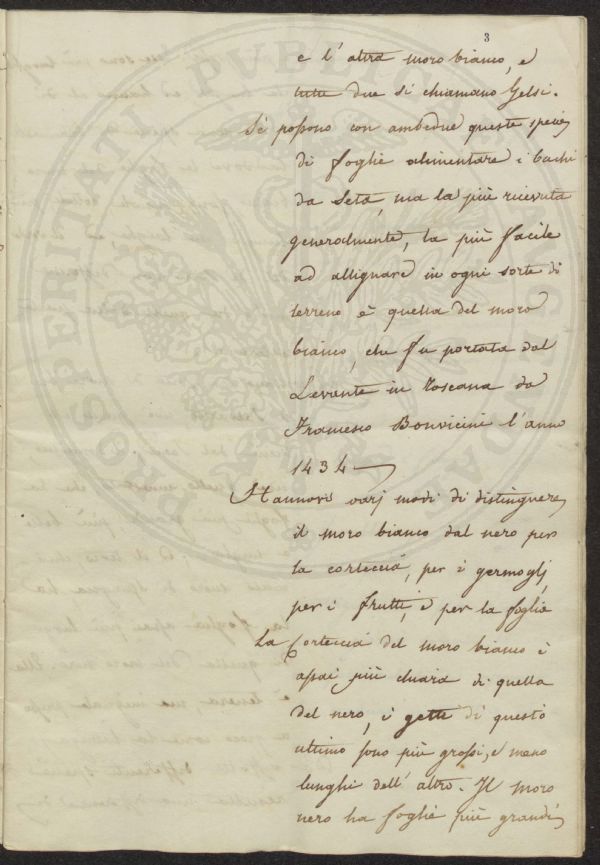 3
e l'altra moro bianco, e
tutti due si chiamano Gelsi.
Si possono con ambedue queste specie
di foglie alimentare i bachi
da Seta, ma la più ricevuta
generalmente, la più facile
ad allignare in ogni sorte di
terreno è quella del moro
bianco, che fu portata dal
Levante in Toscana da
Francesco Bonvicini l'anno
1434
Hannovi varj modi di distinguere
il moro bianco dal nero per
la corteccia, per i germoglj
per i frutti, e per la foglia
La Corteccia del moro bianco è
assai più chiara di quella
del nero, i getti di questo
ultimo sono più grossi, e meno
lunghi dell'altro. Il moro
nero ha foglie più grandi,
PROSPERITATI PUBLICAE